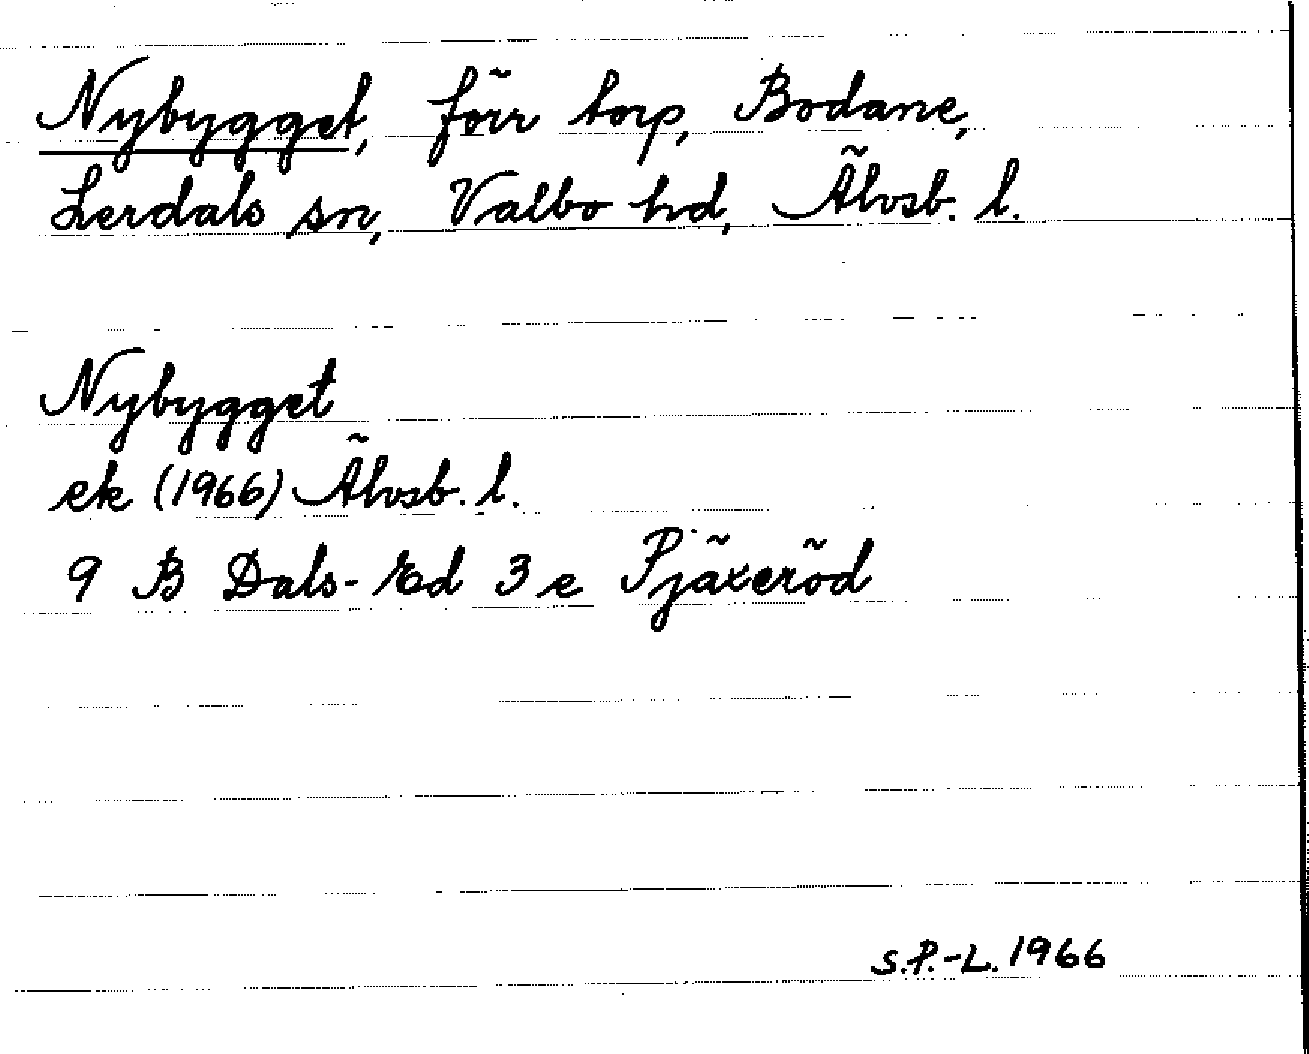 Nybygget, förr torp, Bodane,
Lerdals sn, Valbo hd, Älvsb. l.
Nybygget
ek (1966) Älvsb. l.
9 B Dals-Ed 3 e Pjäxeröd
S.P.-L. 1966